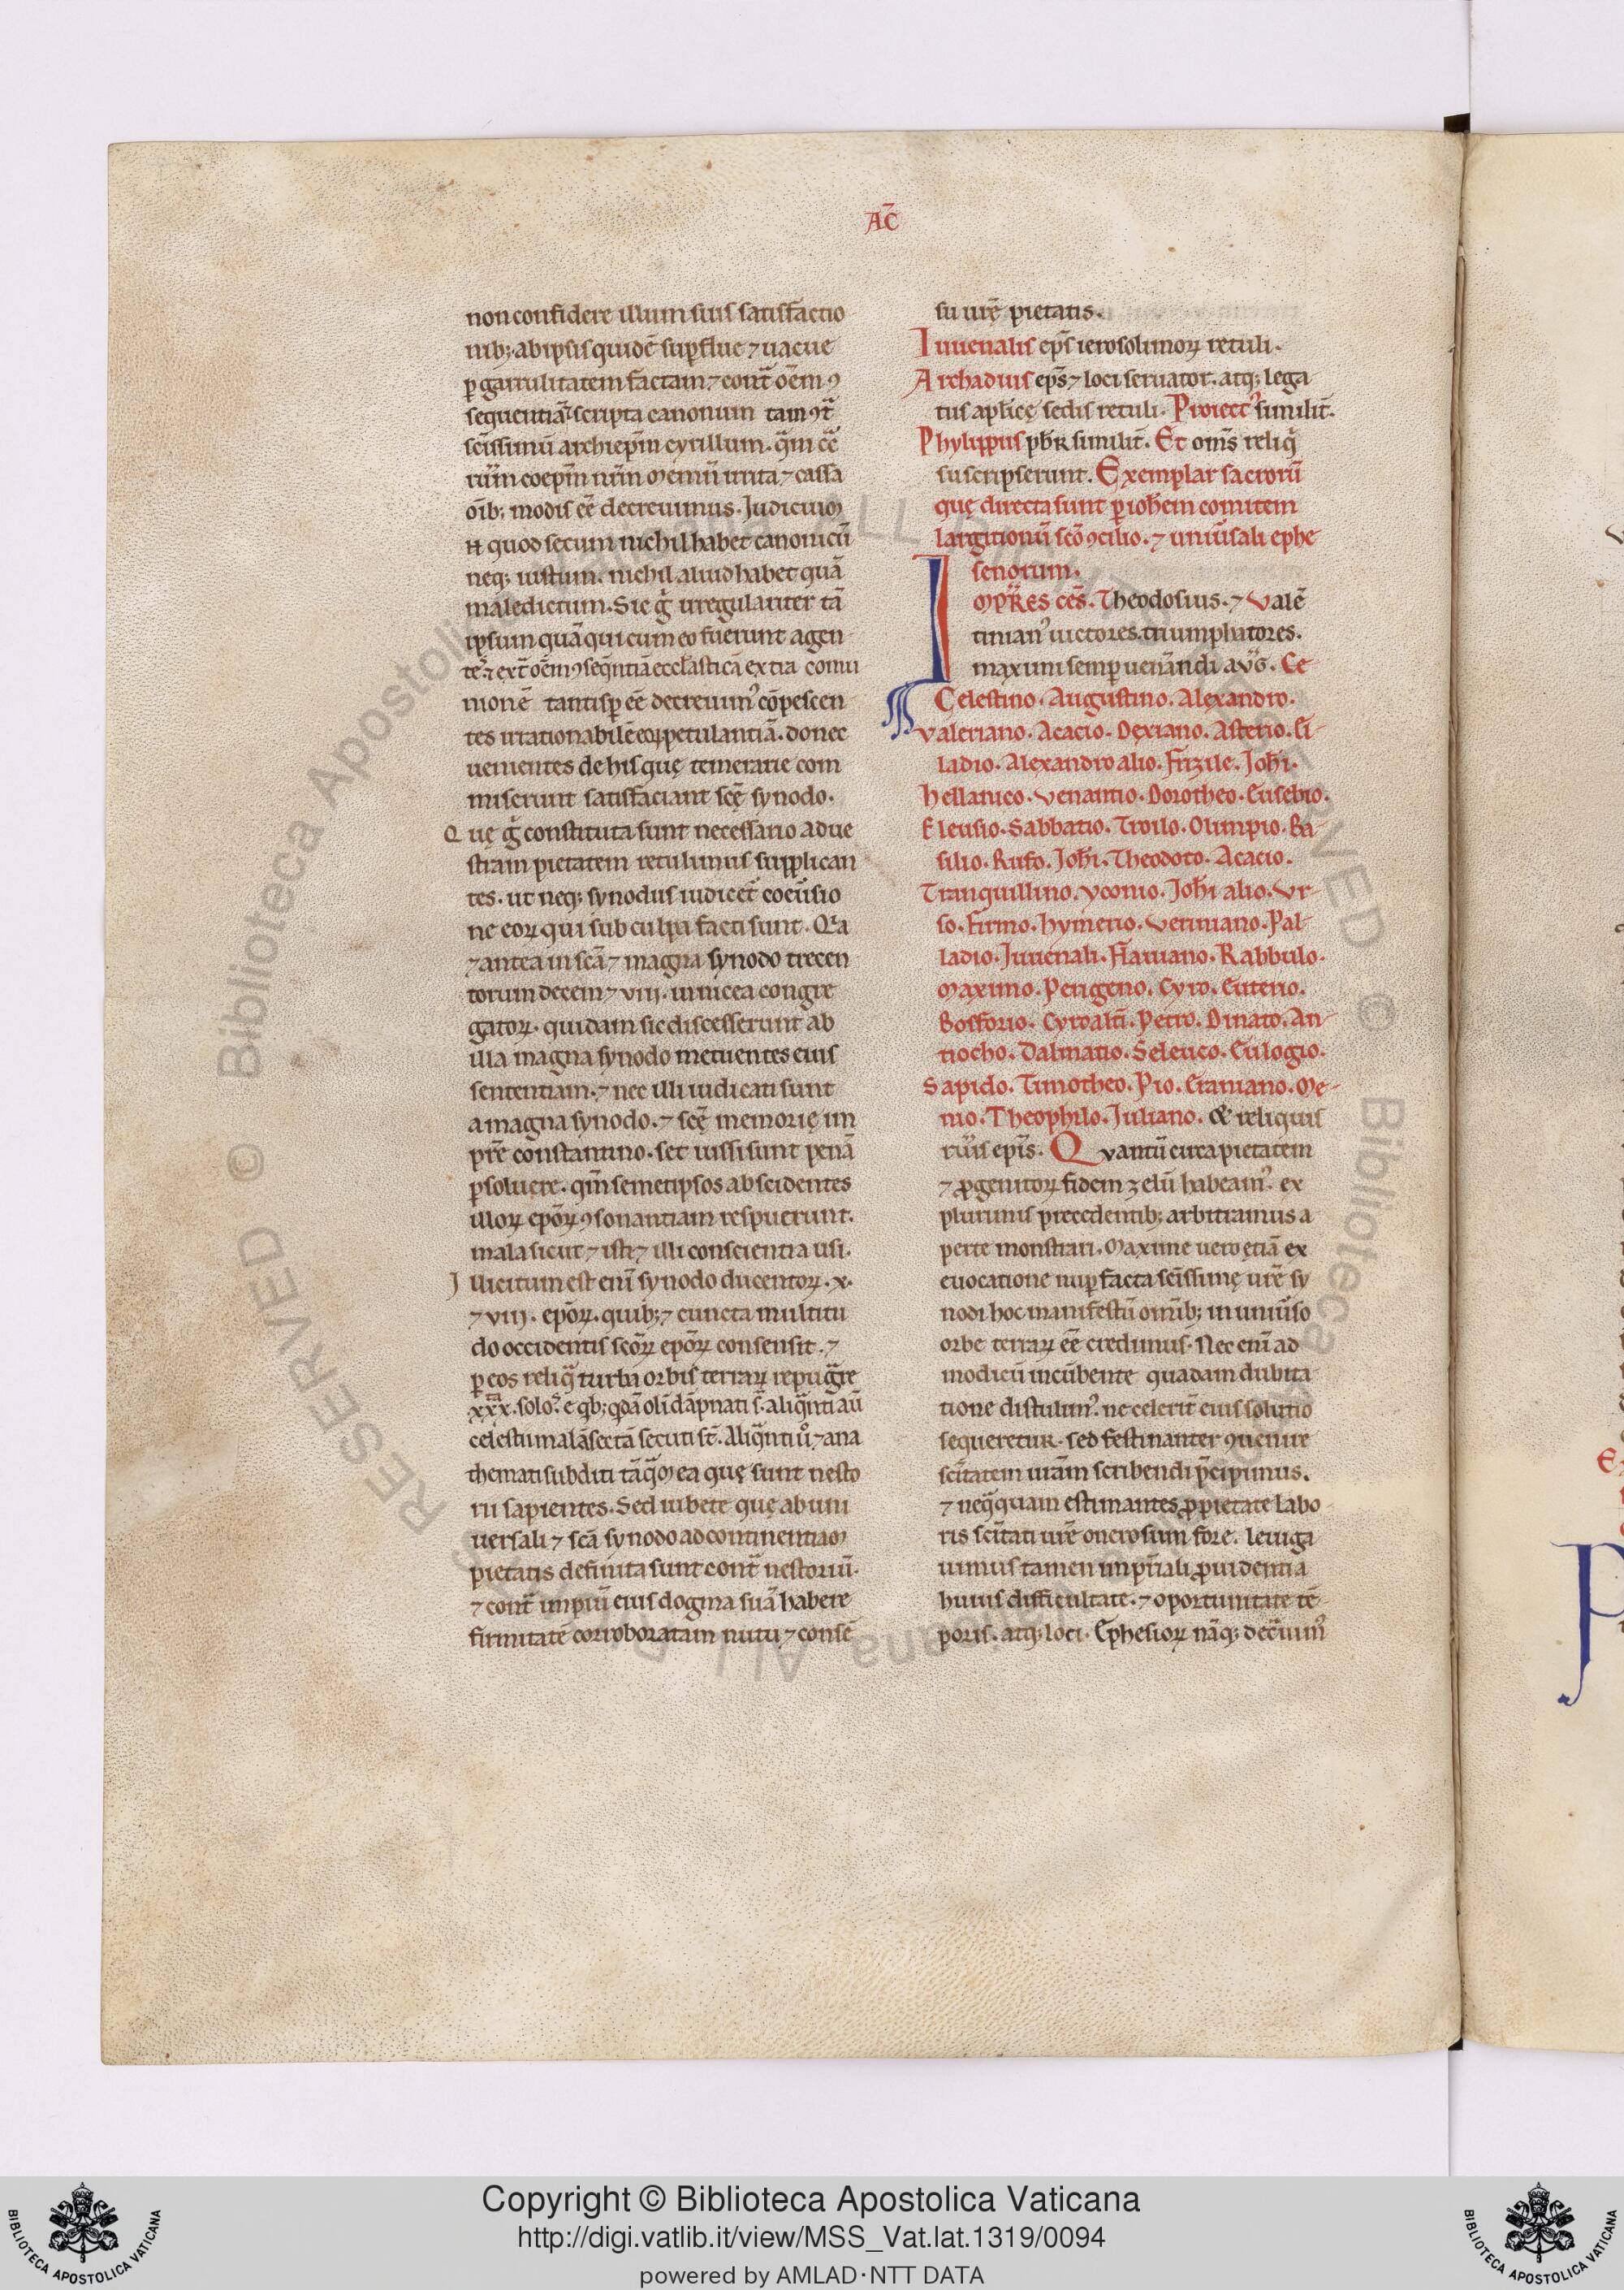 AC̄
non confidere illum suis satisfactio
nib; ab ipsis quidē suꝑflue ⁊ uacue
ꝑ garrulitatem factam ⁊ cont̄ oēm ꝯ
sequentiā scripta canonum tam ꝯt̄
sc̄issimū archiep̄m cyrillum. quā cē
rūm coep̄m nr̄m memn̄ irrita ⁊ cassa
oīb; modis eē decreuimus. Judicium
n̄ quod secum nichil habet canonicū
neq; iustum. nichil aliud habet quā
maledictum. Sic g̊ irregulariter tā
ipsum quā qui cum eo fuerunt agen
tes ⁊ ext̄ oēm ꝯseq̄ntiā eccl̄asticā extra comu
nionē tantisꝑ eē decreuim᾽ cōpescen
tes irrationabilē eoꝝ petulantiā. donec
uenientes de his quę temerarie com
miserunt satisfaciant scę̄ synodo.
Quę g̊ constituta sunt necessario ad ue
stram pietatem retulimus supplican
tes. ut neq; synodus iudicet᷑ coeūsio
ne eoꝝ qui sub culpa facti sunt. Qa
⁊ antea in sc̄a ⁊ magna synodo trecen
torum decem ⁊ viii. in nicea congre
gatoꝝ. quidam sic discesserunt ab
illa magna synodo metuentes eius
sententiam. ⁊ nec illi iudicati sunt
a magna synodo. ⁊ scę̄ memorię im
pr̄e constantino. set iussi sunt penā
ꝑsoluere. qm̄ semetipsos abscidentes
illoꝝ ep̄oꝝ ꝯsonantiam respuerunt.
mala sicut ⁊ isti ⁊ illi conscientia usi.
Jllicitum est enī synodo ducentoꝝ. x.
⁊ viii. ep̄oꝝ. quib; ⁊ cuncta multitu
do occidentis sc̄oꝝ ep̄oꝝ consensit. ⁊
ꝑ eos reliq̄ turba orbis terraꝝ repugn̄re
xxx. solos. e qb; qdā oli dāpnati s̄. aliqn̄ti aū
celestii malā sectā secuti st̄. Aliqn̄ti u᷎. ⁊ ana
themati subditi tāqm̄ ea quę sunt nesto
rii sapientes. Sed iubete quę ab uni
uersali ⁊ sc̄a synodo ad continentiam
pietatis definita sunt cont̄ nestoriū.
⁊ cont̄ impiū eius dogma suā habere
firmitatē corroboratam nutu ⁊ consē
su ur̄ę pietatis.
Juuenalis ep̄s ierosolimoꝝ retuli.
Archadius ep̄s ⁊ loci seruator. atq; lega
tus apl̄icę sedis retuli. Proiect᾽ similit̄.
Phylippus pb̄r similit̄. Et om̄s reliq̄
suscripserunt. Exemplar sacrorū
quę directa sunt ꝑ ioh̄em comitem
largitionū sc̄o ꝯcilio. ⁊ uniūsali ephe
senorum.
JMPR̄ES CES̄. Theodosius. ⁊ Valē
tinian᾽ uictores. triumphatores.
maximi semꝑ uenāndi AVG̅. Ce
Celestino. Augustino. Alexandro.
Valeriano. Acacio. Dexiano. Asterio. Ci-
ladio. Alexandro alio. Frizile. Joh̄i.
Hellanico. Venantio. Dorotheo. Eusebio.
Eleusio. Sabbatio. Troilo. Olimpio. Ba-
silio. Rufo. Joh̄i. Theodoto. Acacio.
Tranquillino. Yconio. Joh̄i alio. Vr-
so. Firmo. Hymerio. Veriniano. Pal-
ladio. Juuenali. Flauiano. Rabbulo.
Maximo. Perigeno. Cyro. Euterio.
Bosforio. Cyro alt̄i. Petro. Dinato. An-
tiocho. Dalmatio. Seleuco. Eulogio.
Sapido. Timotheo. Pio. Eraniano. Me-
nio. Theophilo. Juliano. & reliquis
rūis ep̄is. Qvantū circa pietatem
⁊ ꝓgenitoꝝ fidem zelū habeam᾽. ex
plurimis precedentib; arbitramus a
perte monstrari. Maxime uero etiā ex
euocatione nuꝑ facta sc̄issimę ur̄e sy
nodi hoc manifestū om̄ib; in uniūso
orbe terraꝝ eē credimus. Nec enī ad
modicū incūbente quadam dubita
tione distulim᾽. ne celerit̄ eius solutio
sequeretur. sed festinanter ꝯuenire
sc̄itatem ur̄am scribendi p̄cipimus.
⁊ neq̄quam estimantes ꝓ pietate labo
ris sc̄itati ur̄e onerosum fore. leuiga
uimus tamen imp̄iali ꝓuidentia
huius difficultatē. ⁊ oportunitate tē
poris. atq; loci. Ephesioꝝ nāq; decīum᾽
Copyright © Biblioteca Apostolica Vaticana
http://digi.vatlib.it/view/MSS_Vat.lat.1319/0094
powered by AMLAD·NTT DATA